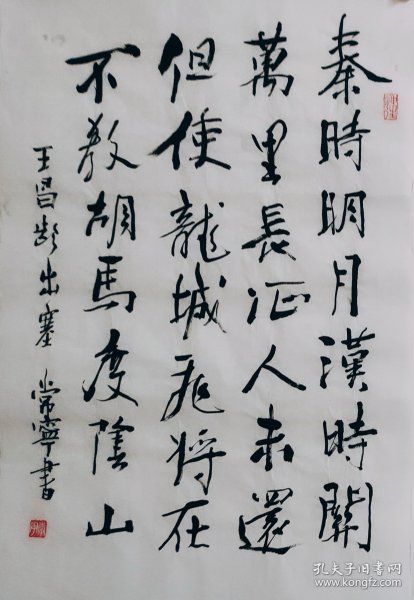 秦時明月漢時關
萬里長征人未還
但使龍城飛將在
不教胡馬度陰山
王昌齡出塞 常寧書
孔夫子旧书网
www.kongfz.com